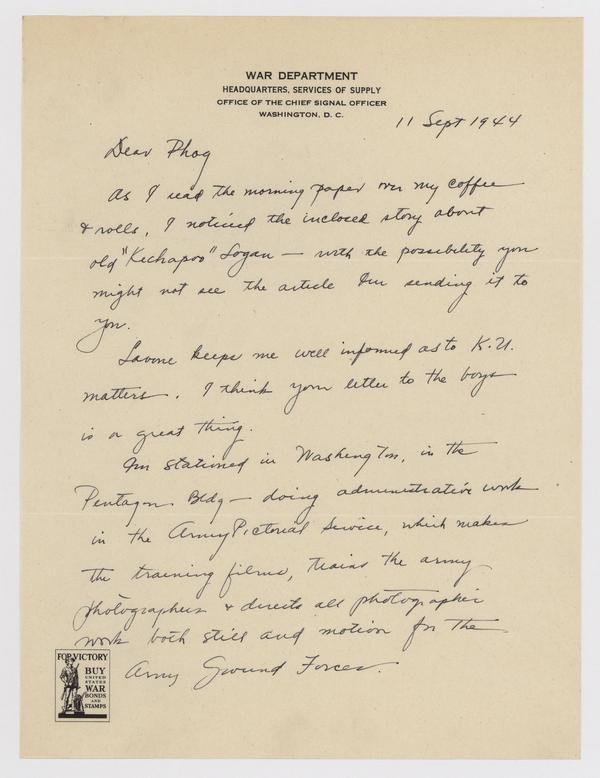 WAR DEPARTMENT
HEADQUARTERS, SERVICES OF SUPPLY
OFFICE OF THE CHIEF SIGNAL OFFICER
WASHINGTON, D. C.
11 Sept 1944
Dear Phog
As I read the morning paper over my coffee
& rolls, I noticed the inclosed story about
old "Kickapoo" Logan — with the possibility you
might not see the article Im sending it to
you.
Lavone keeps me well informed as to K.U.
matters. I think your letter to the boys
is a great thing.
Im stationed in Washington, in the
Pentagon Bldg — doing administrative work
in the Army Pictorial Service, which makes
the training films, trains the army
photographers & directs all photographic
work both still and motion for the
Army Ground Forces.
FOR VICTORY
BUY
UNITED
STATES
WAR
BONDS
AND
STAMPS